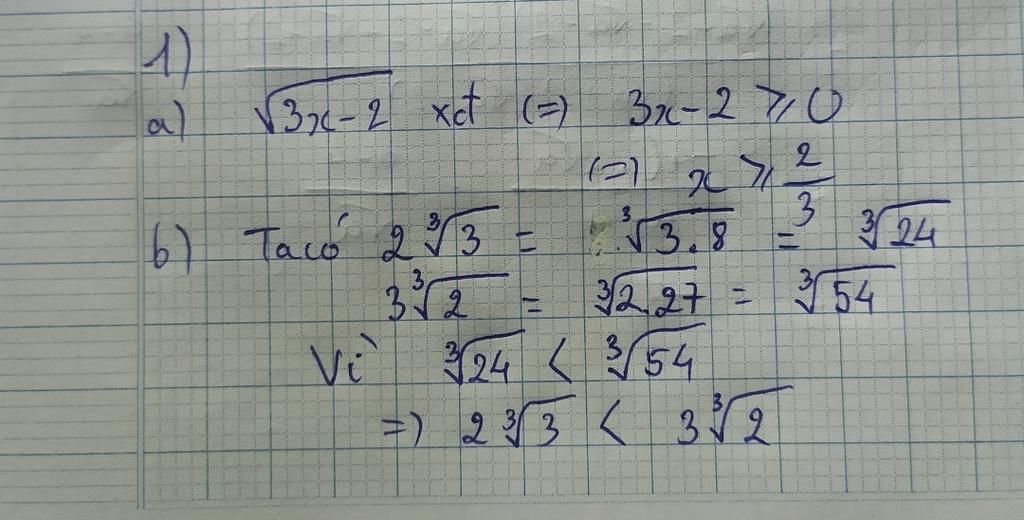 1)
a) √(3x-2) xđ (=) 3x-2 ≥ 0
(=) x ≥ 2/3
b) Ta có 2∛3 = ∛(3.8) = ∛24
3∛2 = ∛(2.27) = ∛54
Vì ∛24 < ∛54
=) 2∛3 < 3∛2